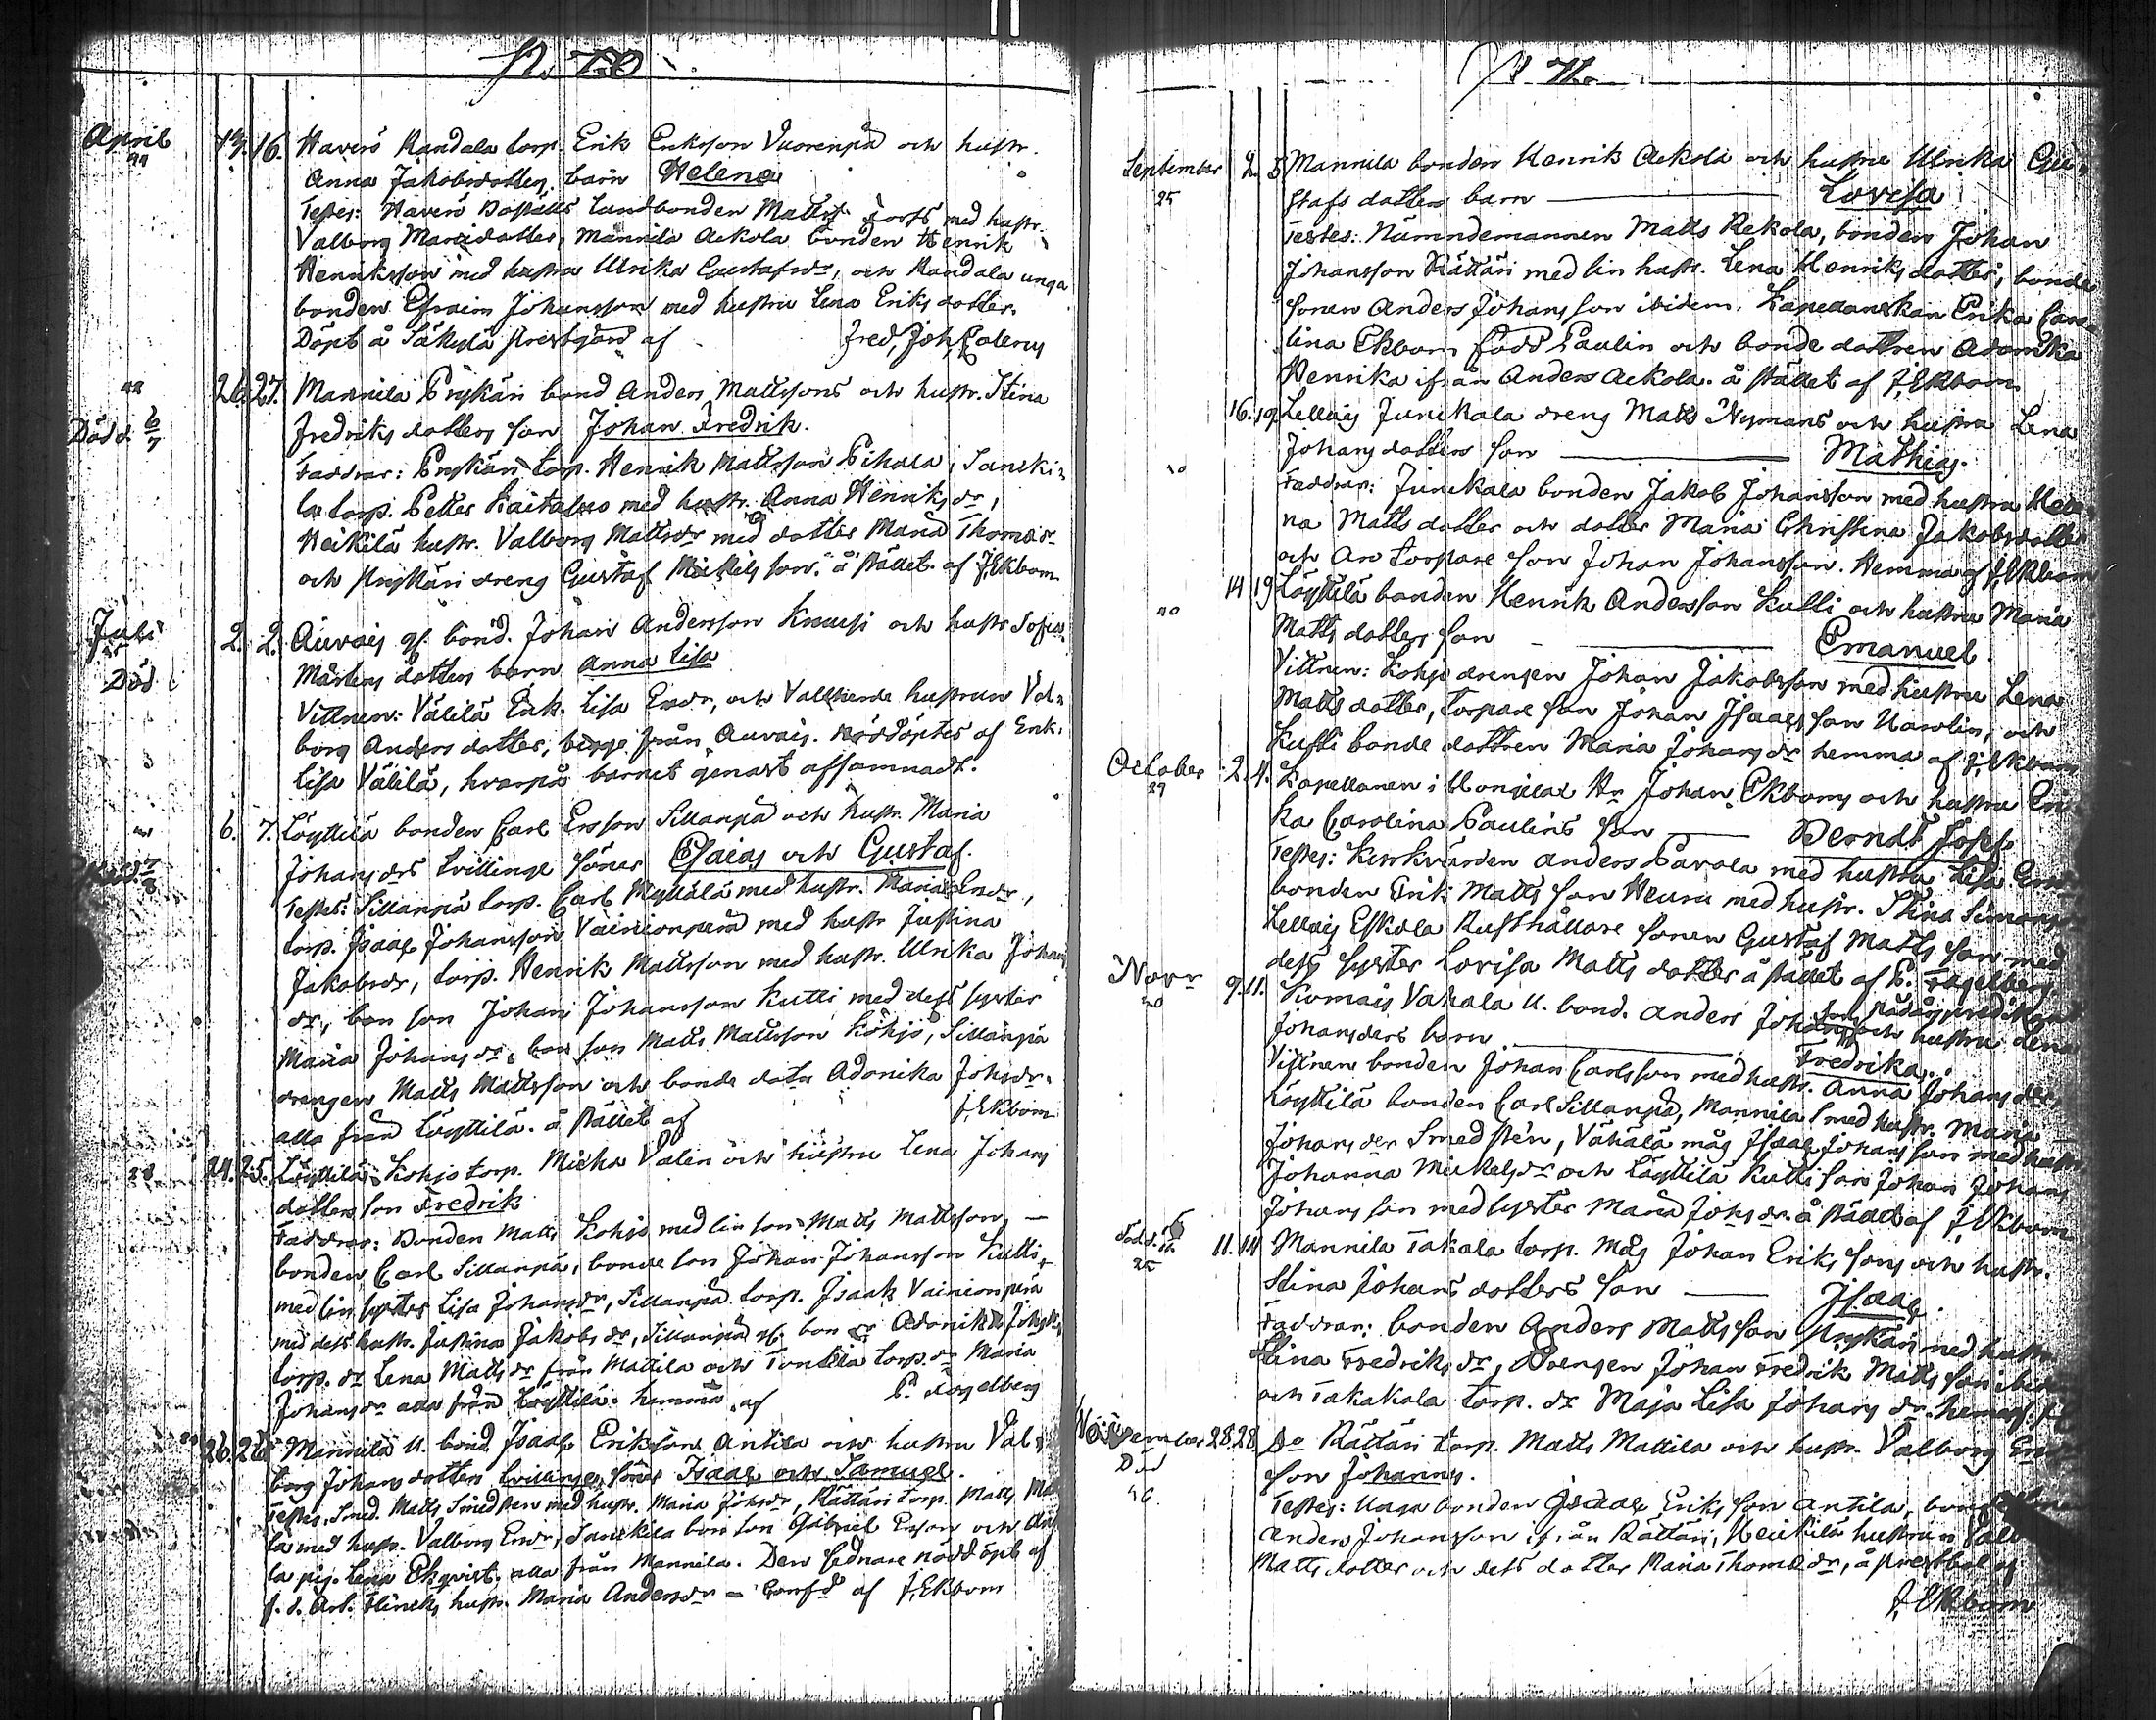 April 13. 16. Haverö Kandala torp. Erik Eriksson Vuorenpä och hustr.
Anna Jakobsdotters barn Helena
Testes: Haverö Boställs Landbonden Matts Fors med hustr.
Valborg dotter, Mannila Aekola bonden Henrik
Henriksson med hustru Ulrika Gustafsdr, och Kandala unga
bonden Efraim Johansson med hustru Lena Eriks dotter.
Döpt å Säkylä prestgård af Fred. Joh.
26. 27. Mannila Prykäri bond Anders Mattsons och hustr. Stina
Död d. 6/7 Fredriks dotters son Johan Fredrik.
Faddrar: Prykäri torp. Henrik Mattsson Pihala, Sanki=
la torp. Petter med hustr. Anna Henriks dr,
Heikilä hustr. Valborg Matts dr med dotter Maria Thomædr
och Prykäri dreng Gustaf Mickels son. å stället af J. Ekbom
Juli 2. 2. Auvais gf. bond. Johan Andersson Knuusi och hustr Sofia
Död Mårtens dotters barn Anna Lisa
Vittnen: Välilä Enk. Lisa Ersdr, och hustrun Val=
borg Anders dotter, begge från Auvais. nöddöptes af Enk.
Lisa Välilä, hvarpå barnet genast afsomnadt.
6. 7. Löyttilä bonden Carl Ersson Sillanpä och hustr. Maria
Johans drs tvillinge söner Esaias och Gustaf.
Testes: Sillanpä torp. Carl Myllälä med hustr. Maria Ersdr,
torp. Isaac Johansson Vainionpera med hustr Justina
Jakobsdr, torp. Henrik Mattsson med hustr. Ulrika Johans
dr, bon son Johan Johansson Kutti med dess syster
Maria Johans dr, bon son Matts Mattsson Köhjo, Sillanpä
drengen Matts Mattsson och bonde dotr Adonika Johsdr.
alla från Löyttilä. å stället af J. Ekbom
24. 25. Löyttilä Kohjo torp. Micha Valin och hustru Lena Johans
dotters son Fredrik
Faddrar: Bonden Matts Kohjo med sin son Matts Mattsson,
bonden Carl Sillanpä, bonde son Johan Johansson Kutti,
med sin syster Lisa Johansdr, Sillanpä torp. Isaak Vainionpera
med dess hustr. Justina Jakobs dr, Sillanpä gf. bon dr Adonika Johsdr,
torp. dr Lena Matts dr från Mattila och Tontila torp. dr Maria
Johans dr alla från Löyttilä. hemma af P. Fogelberg
26. 26. Mannila U. bond. Isaac Eriksons Antila och hustru Val=
borg Johans dotters tvillinge söner Isaac och Samuel.
Testes. Smed. Matts Smedsten med hustr. Maria Johsdr, Rättäri torp. Matts Matti
la med hustr. Valborg Ersdr, Sanckila bon son Gabriel Ersson och Anti
la pig. Lena Ekqvist. alla från Mannila. Den sednare nöddöpt af
f. d. Art. Flincks hustr. Maria Andersdr = Confd af J. Ekbom
September 2. 5 Mannila bonden Henrik Aekola och hustru Ulrika Gu=
25 stafs dotters barn Lovisa
Testes: Nämndemannen Matts Rekola, bonden Johan
Johansson Rättäri med sin hustr. Lena Henriks dotter, bonde
sonen Anders Johansson ibidem. Kapellanskan Erika Caro
lina Ekbom född Paulin och bonde dottren Adamika
Henrika ifrån Anders Aekola. å stället af J. Ekbom
16. 19. Lellais Junckala dreng Matts Nymans och hustru Lena
Johans dotters son Mathias.
Faddrar: Junckala bonden Jakob Johansson med hustru Hele
na Matts dotter och dotter Maria Christina Jakobsdotter
och An torpare son Johan Johansson. Hemma af J. Ekbom
14 19 Löyttilä bonden Henrik Andersson Kutti och hustru Maria
20 Matts dotters son Emanuel.
Vittnen: Kohjo drengen Johan Jakobsson med hustru Lena
Matts dotter, torpare son Johan Isaacsson, och
Kutti bonde dottren Maria Johans dr hemma af J. Ekbom
October 2. 4. Kapellanen i Honkilax Hr Johan Ekboms och hustru Eri
29 ka Carolina Paulins son Berndt Josef
Testes: Kyrkvärden Anders Pavola med hustru Lisa
bonden Erik Matts son Heuru med hustr. Stina Simons
Lellais Eskola Rusthållare sonen Gustaf Matts son med
dess syster Lovisa Matts dotter å stället af P. Fogelberg.
Novr 9. 11. Komais Vahala U. bond. Anders Johans sons och hustru Lena
20 Johansders barn Fredrika.
Vittnen bonden Johan Carlsson med hustr. Anna Johans der,
Löyttilä bonden Carl Sillanpä, Mannila Smed hustr. Maria
Johans der Smedstén, Vähälä måg Isaac Johans son med hustr.
Johanna Mickelsdr och Löyttilä Kutti son Johan Johans
Johans son med syster Maria Johs dr. å stället af J. Ekbom
11. 14 Mannila Takala torp. måg Johan Eriks sons och hustr.
25 Stina Johans dotters son Isaac.
Faddrar: bonden Anders Matts son Prykäri med hustru
Stina Fredriks dr, Drengen Johan Fredrik Matts son ibid
och Takakala torp. dr Maja Lisa Johans dr. hemma af J.
November 28. 28. Do Rättäri torp. Matts Mattila och hustr. Valborg Ers
Död son Johannes.
26. Testes: Unga bonden Isaac Eriks son Antila,
Anders Johansson ifrån Rättäri, Heickilä hustrun Valb
Matts dotter och dess dotter Maria Thomædr, å prestbol af
J. Ekbom